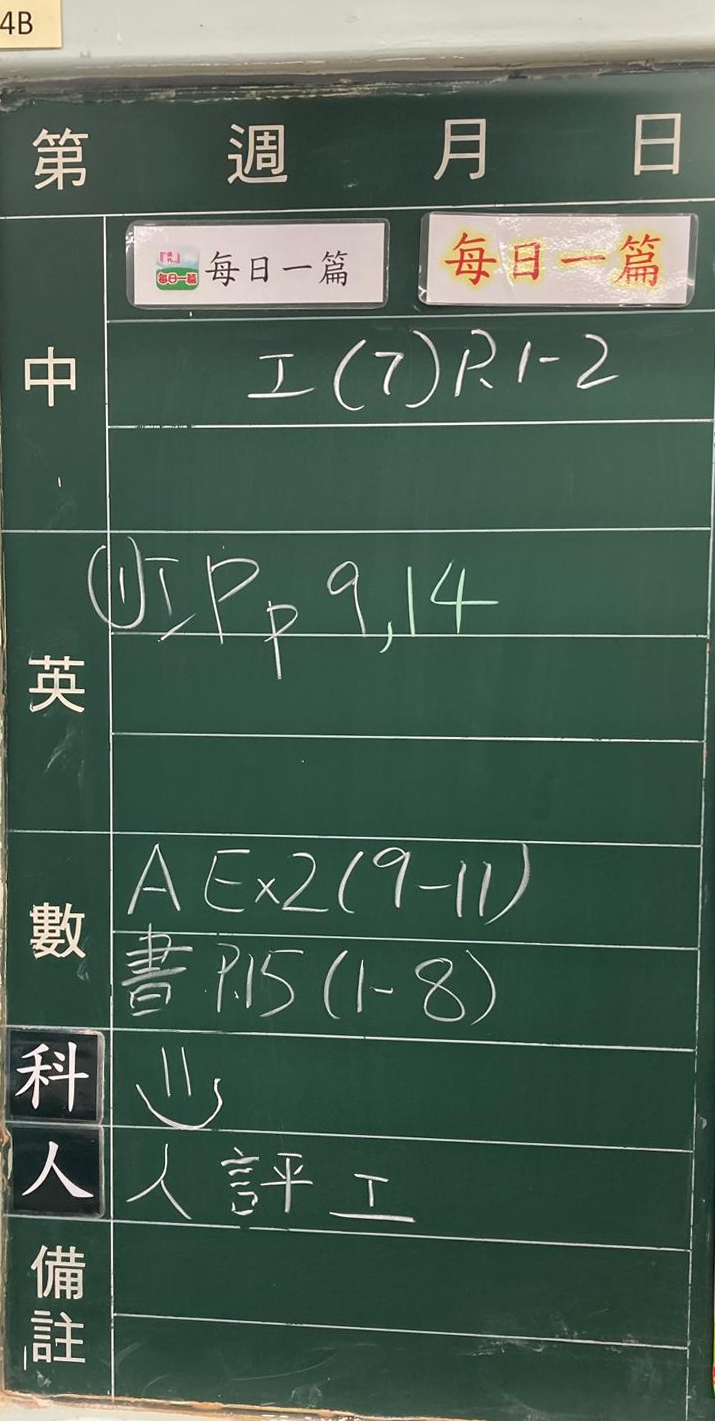 4B
第 週 月 日
每日一篇 每日一篇 每日一篇
中
工(7)P.1-2
英
①工 P p 9,14
數
A Ex2(9-11)
書 P.15(1-8)
科
人 人評工
備註